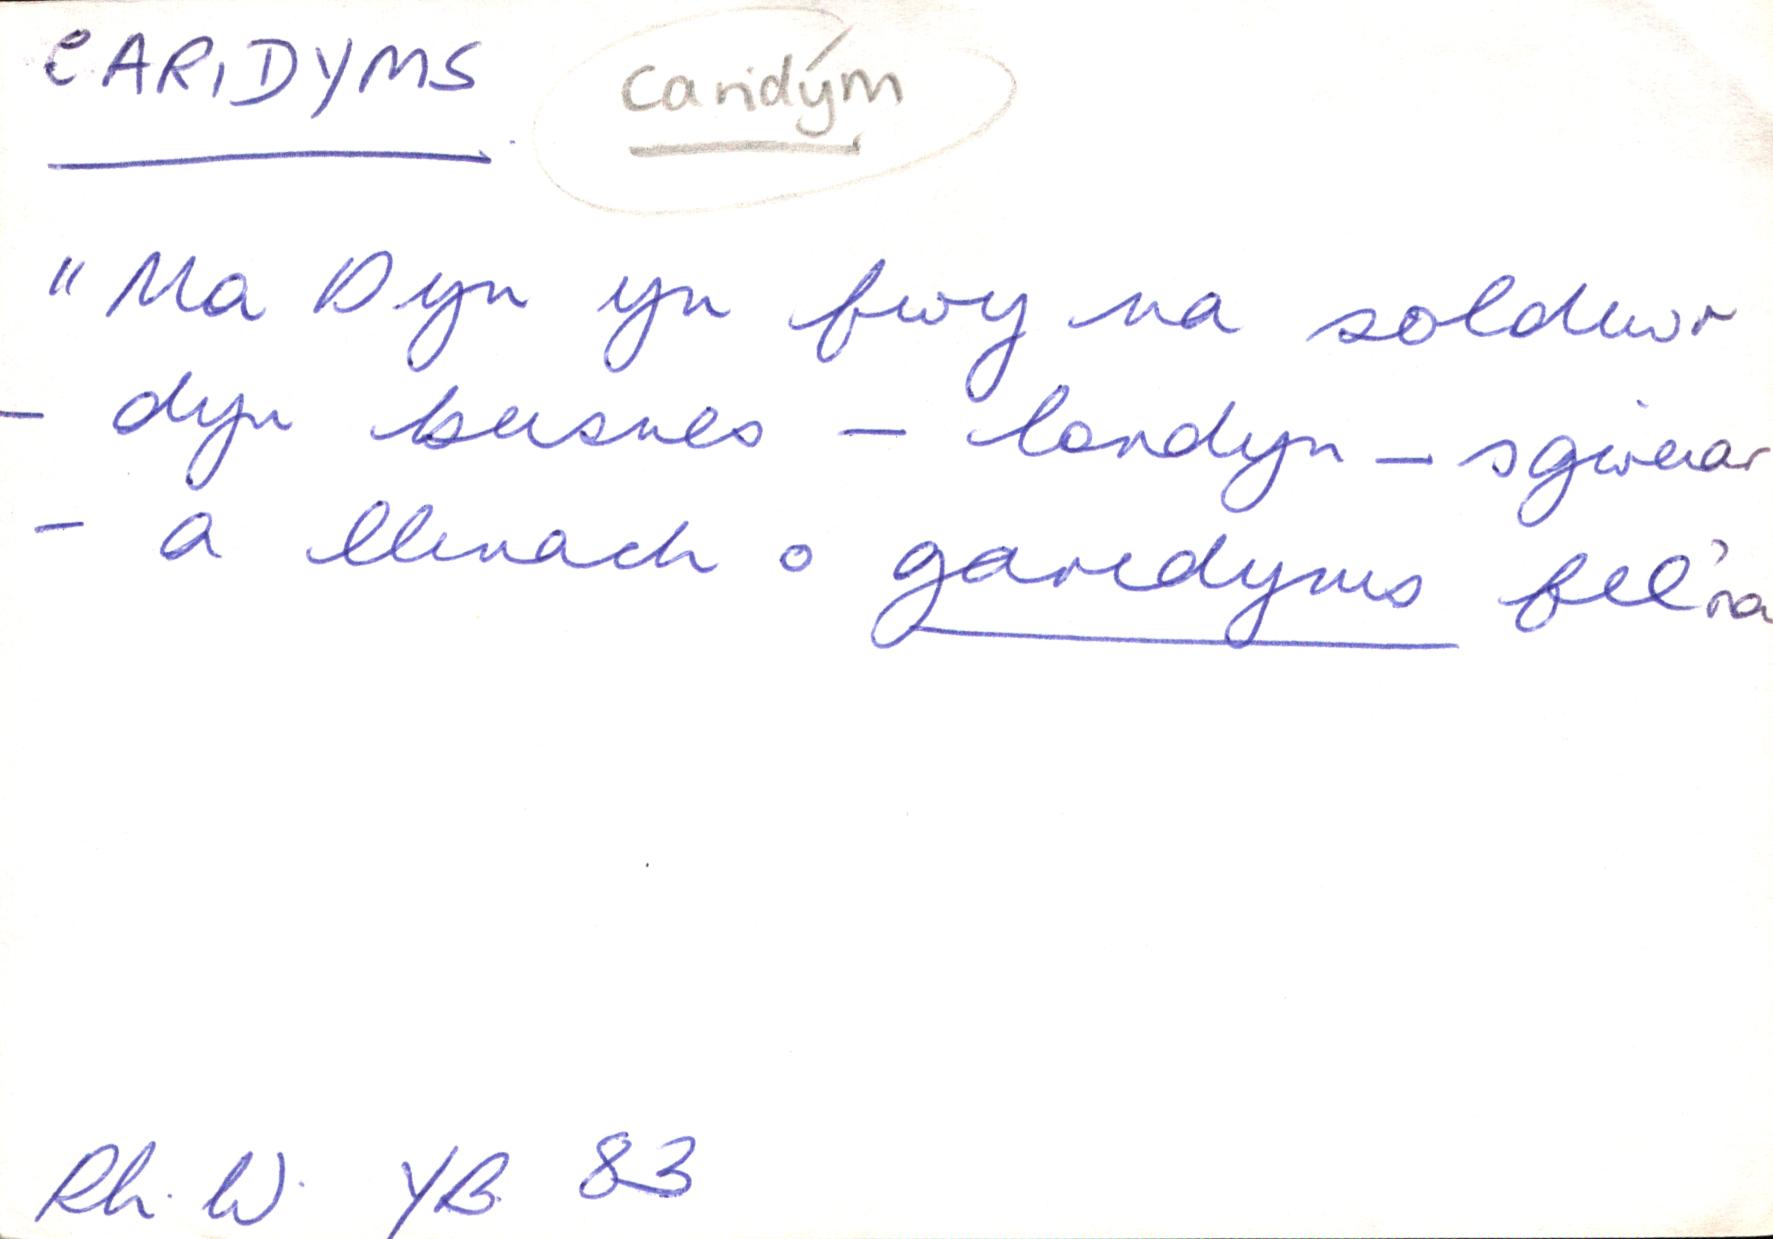 CARIDYMS caridým
"Ma Dyn yn fwy na soldiwr
- dyn busnes - londyn - sgwiar
- a llinach o garidyms fel 'na
Rh. W. YB 83